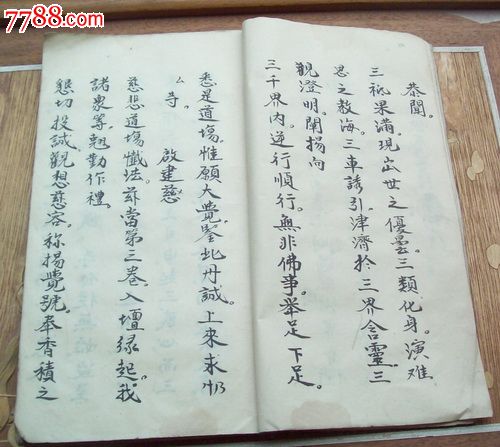 7788.com
恭聞。
三祇果滿。現出世之優曇。三類化身。演难
思之教海。三車誘引。津濟於三界含靈。三
觀澄明。闡揚向
三千界内。逆行順行。無非佛事。举足下足。
悉是道塲。惟願大覺。鍳此丹誠上来求
厶寺。啟建慈
慈悲道塲懺法。兹當第三卷。入壇縁起。我
諸衆等。翘勤作禮。
懇切投誠。觀想慈容。称揚覺號。奉香積之